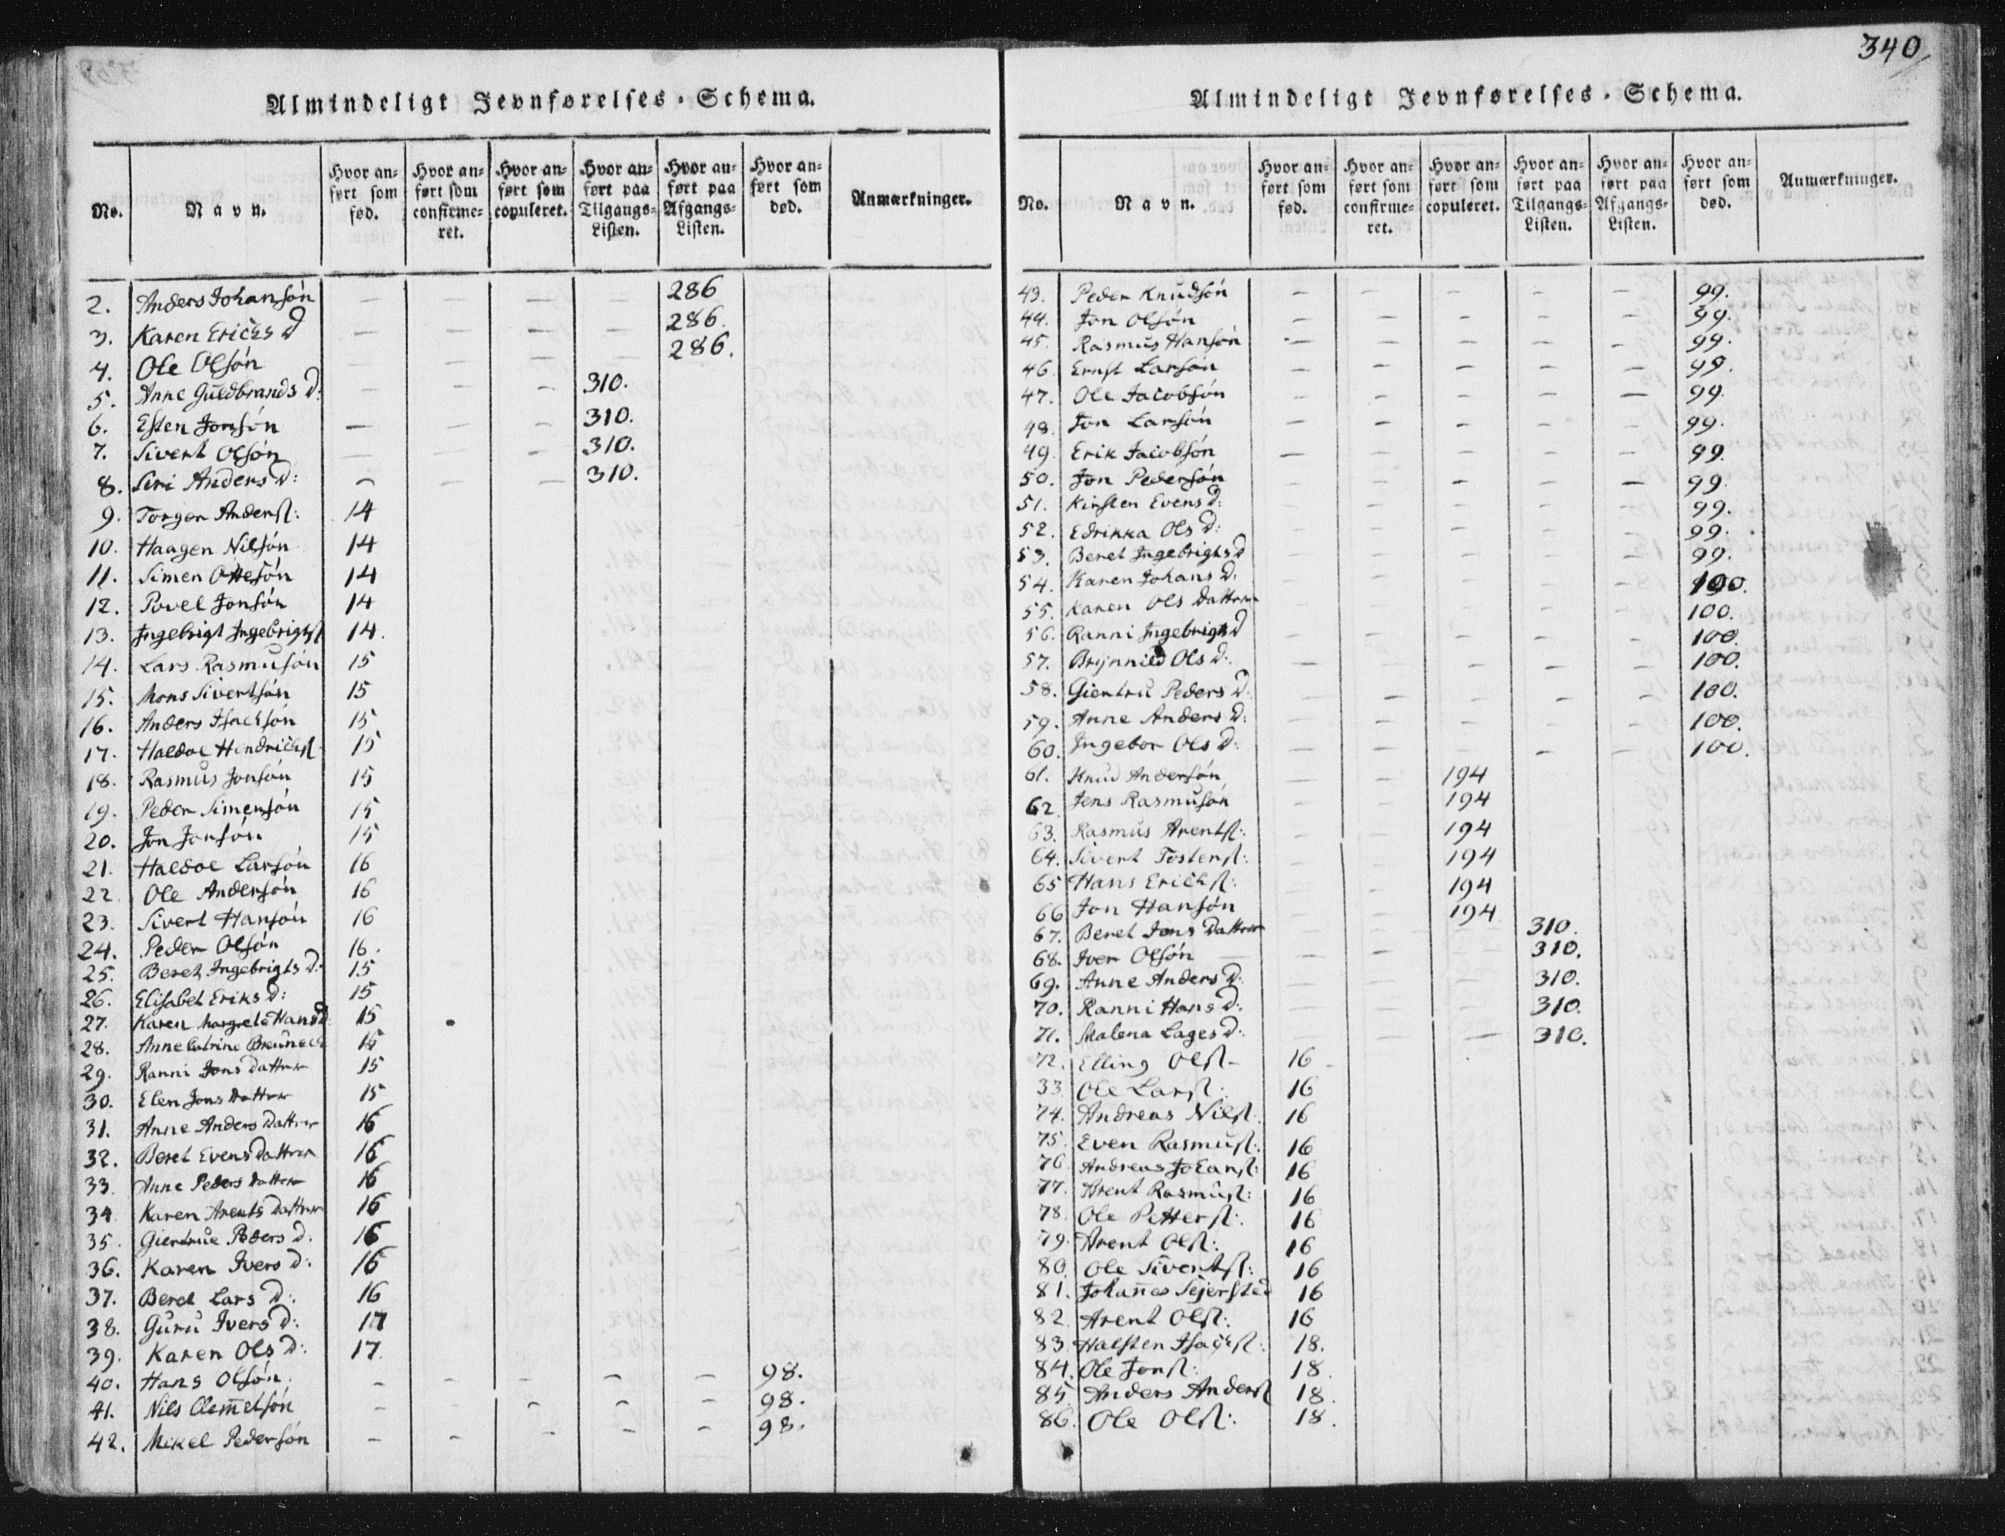 340
Almindeligt Jevnførelses-Schema.
No. Navn. Hvor anført som fød. Hvor anført som confirmeret. Hvor anført som copuleret. Hvor anført paa Tilgangs-Listen. Hvor anført paa Afgangs-Listen. Hvor anført som død. Anmærkninger.
2. Anders Johansøn — — — — 286
3. Karen Erichs D — — — — 286.
4. Ole Olsøn — — — — 286.
5. Anne Guldbrands D: — — — 310.
6. Esten Jonsøn — — — 310.
7. Sivert Olsøn — — — 310.
8. Siri Anders D: — — — 310.
9. Torger Anderss: 14
10. Haagen Nilsøn 14
11. Simen Ottesøn 14
12. Povel Jonsøn 14
13. Ingebrigt Ingebrigts 14.
14. Lars Rasmusøn 15
15. Mons Sivertsøn 15
16. Anders Isachsøn 15
17. Haldoe Hendrichs: 15
18. Rasmus Jonsøn 15
19. Peder Simensøn 15
20. Jon Jonsøn 15
21. Haldoe Larsøn 16
22. Ole Andersøn 16
23. Sivert Hansøn 16
24. Peder Olsøn 16.
25. Beret Ingebrigts D: 15
26. Elisabet Eriks D: 15
27. Karen Margrete Hans D: 15
28. Anne Catrine 15
29. Ranni Jons Datter 15
30. Elen Jons Datter 15
31. Anne Anders Datter 16
32. Beret Evens Datter 16
33. Anne Peders Datter 16
34 Karen Arents Datter 16
35. Giertrue Peders D: 16
36. Karen Ivers D: 16
37. Beret Lars D: 16
38. Guru Ivers D: 17
39. Karen Ols D: 17
40. Hans Olsøn — — — — — 98.
41. Nils Clem̄etsøn — — — — — 98.
42. Mikel Pedersøn — — — — — 98.
Almindeligt Jevnførelses-Schema.
No. Navn. Hvor anført som fød. Hvor anført som confirmeret. Hvor anført som copuleret. Hvor anført paa Tilgangs-Listen. Hvor anført paa Afgangs-Listen. Hvor anført som død. Anmærkninger.
43. Peder Knudsøn — — — — — 99.
44. Jon Olsøn — — — — — 99.
45. Rasmus Hansøn — — — — — 99.
46. Ernst Larsøn — — — — — 99.
47. Ole Jacobsøn — — — — — 99.
48. Jon Larsøn — — — — — 99.
49. Erik Jacobsøn — — — — — 99.
50. Jon Pedersøn — — — — — 99.
51. Kirsten Evens D: — — — — — 99.
52. Edrikka Ols D: — — — — — 99.
53. Beret Ingebrigts D — — — — — 99.
54. Karen Johans D: — — — — — 100.
55. Karen Ols Datter — — — — — 100.
56. Ranni Ingebrigts D — — — — — 100.
57. Brynnild Ols D: — — — — — 100.
58. Giertru Peders D: — — — — — 100.
59. Anne Anders D: — — — — — 100.
60. Ingebor Ols D: — — — — — 100.
61. Knud Andersøn — — 194
62. Jens Rasmusøn — — 194
63. Rasmus Arents: — — 194
64. Sivert Tosters: — — 194
65 Hans Erichs: — — 194
66 Jon Hansøn — — 194
67. Beret Jons Datter — — — 310.
68. Iver Olsøn — — — 310.
69. Anne Anders D: — — — 310.
70. Ranni Hans D: — — — 310.
71. Malena Lages D: — — — 310.
72. Elling Ols: 16
33 Ole Lars: 16
74. Andreas Nils: 16
75. Even Rasmus: 16
76 Andreas Johans: 16
77. Arent Rasmus: 16
78. Ole Petters: 16
79. Arent Ols: 16
80. Ole Siverts: 16
81. Johan̄es Sejersted 16
82. Arent Ols: 16
83. Halsten Isachs: 18.
84. Ole Jons: 18.
85. Anders Anders 18.
86. Ole Ols: 18.